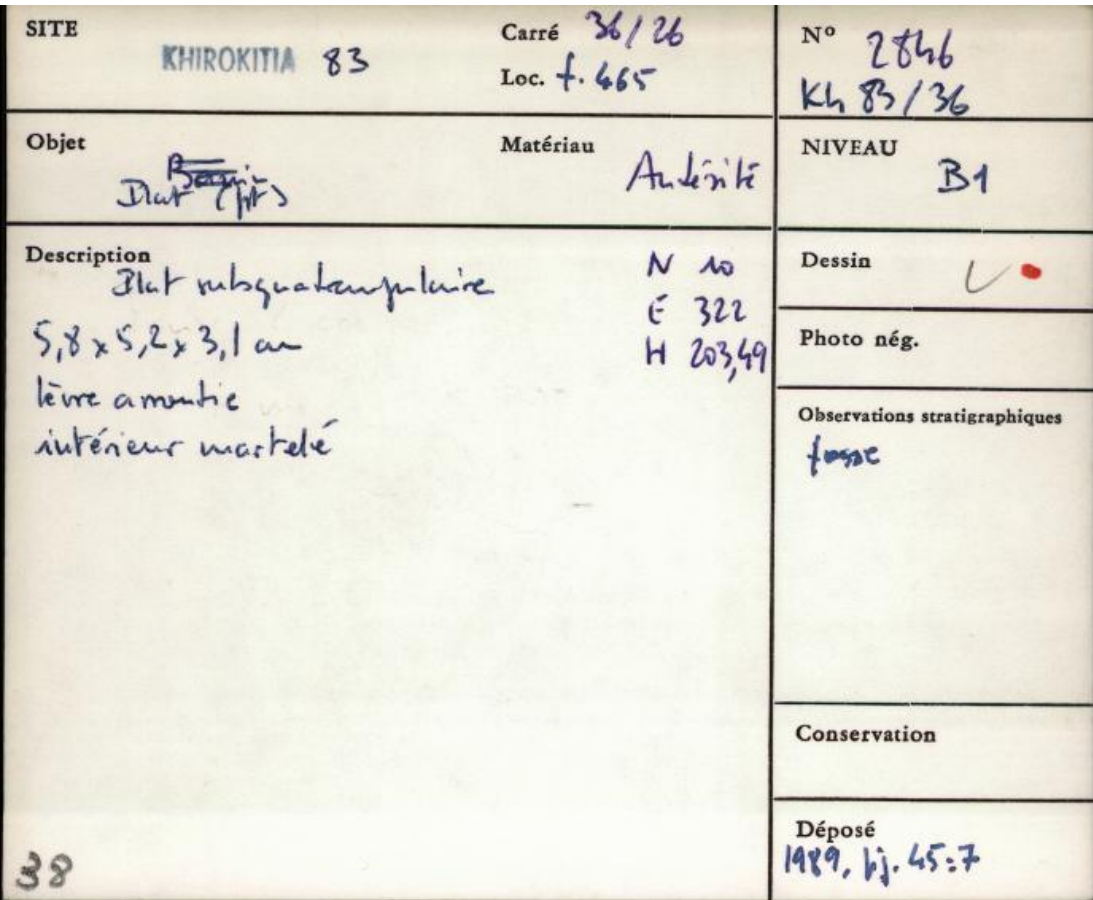 SITE
KHIROKITIA 83
Carré 36/26
Loc. f. 465
N° 2846
Kh 83/36
Objet
Plat (pt)
Matériau
Andésite
NIVEAU
B1
Description
Plat subquadrangulaire
5,8 x 5,2 x 3,1 cm
lèvre amontie
intérieur martelé
N 10
E 322
H 203,49
Dessin
Photo nég.
Observations stratigraphiques
fosse
Conservation
Déposé
1989, fig. 45:7
38